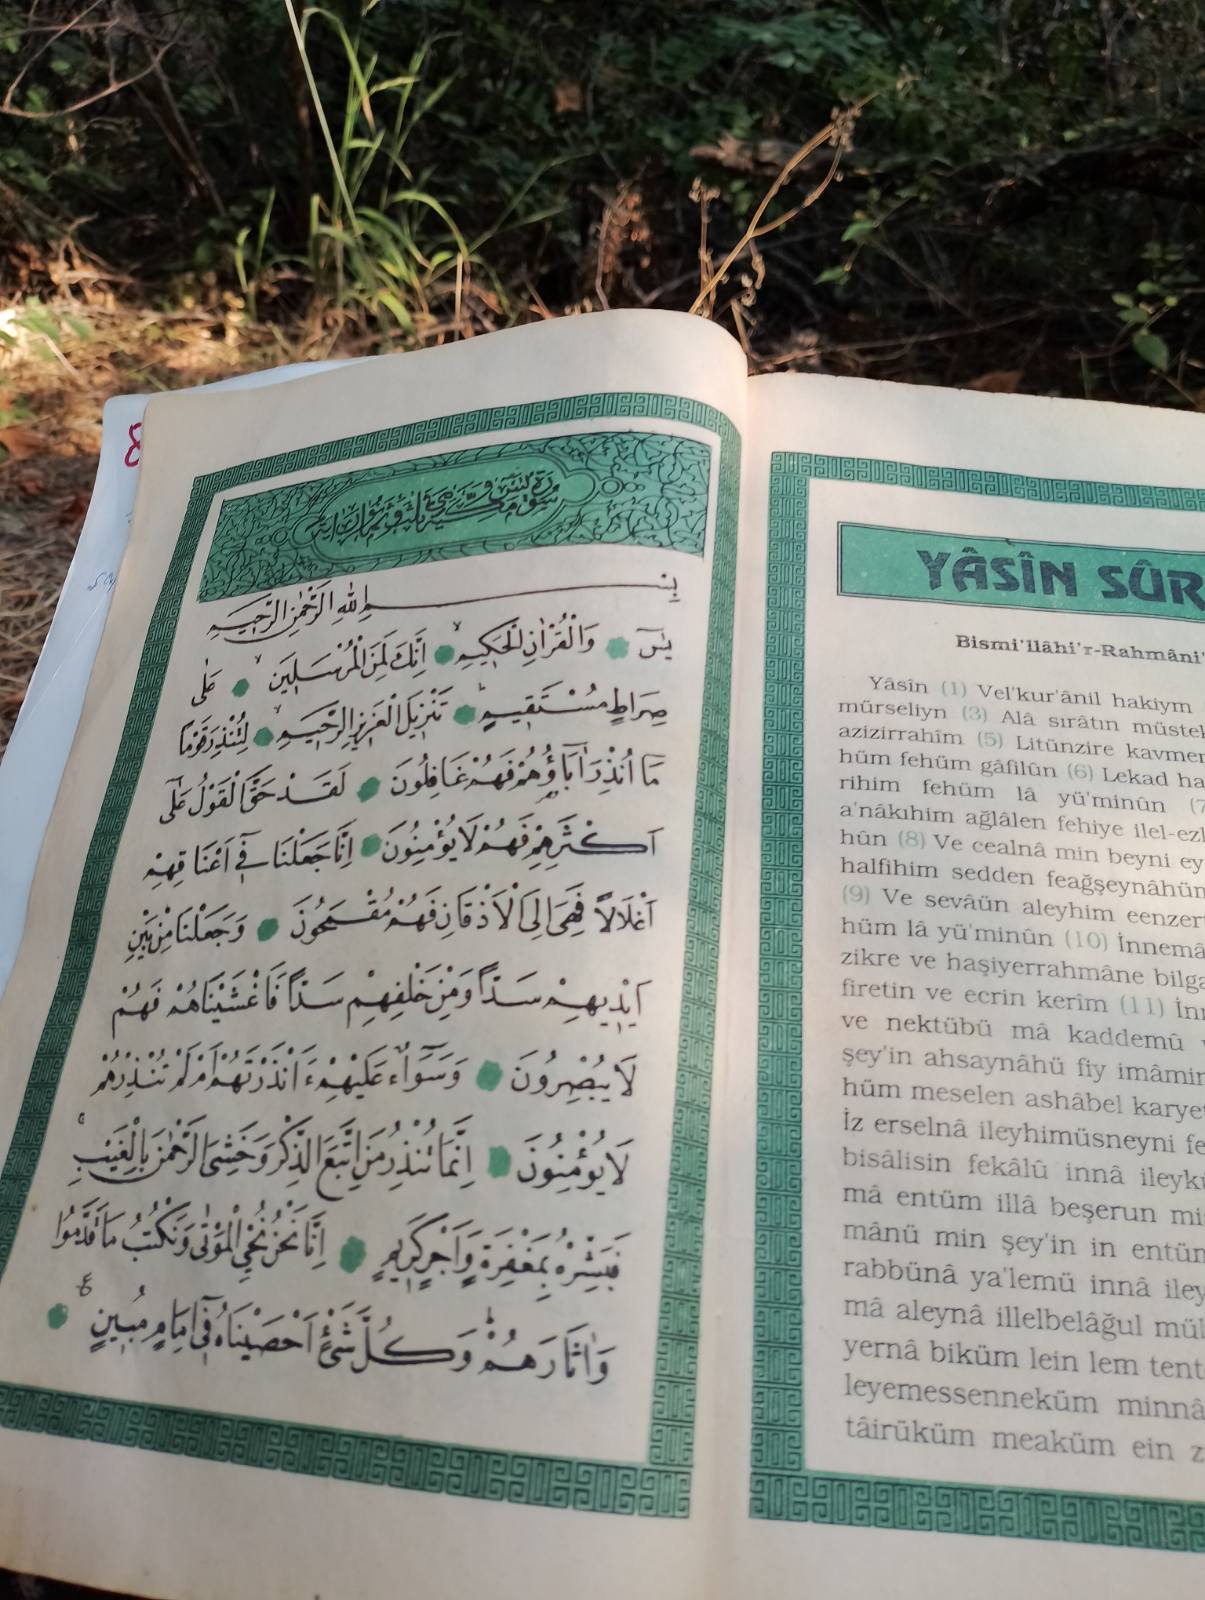 سورة يس وهى ثلاث وثمانون آية
بِسْمِ اللهِ الرَّحْمٰنِ الرَّحِيمِ
يٰسٓ وَالْقُرْاٰنِ الْحَكِيمِ اِنَّكَ لَمِنَ الْمُرْسَلِينَ عَلٰى
صِرَاطٍ مُسْتَقِيمٍ تَنْزِيلَ الْعَزِيزِ الرَّحِيمِ لِتُنْذِرَ قَوْمًا
مَا اُنْذِرَ اٰبَاؤُهُمْ فَهُمْ غَافِلُونَ لَقَدْ حَقَّ الْقَوْلُ عَلٰٓى
اَكْثَرِهِمْ فَهُمْ لَا يُؤْمِنُونَ اِنَّا جَعَلْنَا فٓى اَعْنَاقِهِمْ
اَغْلَالًا فَهِىَ اِلَى الْاَذْقَانِ فَهُمْ مُقْمَحُونَ وَجَعَلْنَا مِنْ بَيْنِ
اَيْدِيهِمْ سَدًّا وَمِنْ خَلْفِهِمْ سَدًّا فَاَغْشَيْنَاهُمْ فَهُمْ
لَا يُبْصِرُونَ وَسَوَٓاءٌ عَلَيْهِمْ ءَاَنْذَرْتَهُمْ اَمْ لَمْ تُنْذِرْهُمْ
لَا يُؤْمِنُونَ اِنَّمَا تُنْذِرُ مَنِ اتَّبَعَ الذِّكْرَ وَخَشِىَ الرَّحْمٰنَ بِالْغَيْبِ
فَبَشِّرْهُ بِمَغْفِرَةٍ وَاَجْرٍ كَرِيمٍ اِنَّا نَحْنُ نُحْيِى الْمَوْتٰى وَنَكْتُبُ مَا قَدَّمُوا
وَاٰثَارَهُمْ وَكُلَّ شَىْءٍ اَحْصَيْنَاهُ فٓى اِمَامٍ مُبِينٍ
YÂSÎN SÛR
Bismi'llâhi'r-Rahmâni'
Yâsîn (1) Vel'kur'ânil hakiym
mürseliyn (3) Alâ sırâtın müstek
azizirrahîm (5) Litünzire kavmen
hüm fehüm gâfilûn (6) Lekad ha
rihim fehüm lâ yü'minûn (7
a'nâkıhim ağlâlen fehiye ilel-ezk
hûn (8) Ve cealnâ min beyni ey
halfihim sedden feağşeynâhün
(9) Ve sevâün aleyhim eenzert
hüm lâ yü'minûn (10) İnnemâ
zikre ve haşiyerrahmâne bilga
firetin ve ecrin kerîm (11) İnn
ve nektübü mâ kaddemû
şey'in ahsaynâhü fiy imâmin
hüm meselen ashâbel karyet
İz erselnâ ileyhimüsneyni fe
bisâlisin fekâlû innâ ileykü
mâ entüm illâ beşerun mis
mânü min şey'in in entüm
rabbünâ ya'lemü innâ iley
mâ aleynâ illelbelâğul mül
yernâ biküm lein lem tente
leyemessenneküm minnâ
tâirüküm meaküm ein z